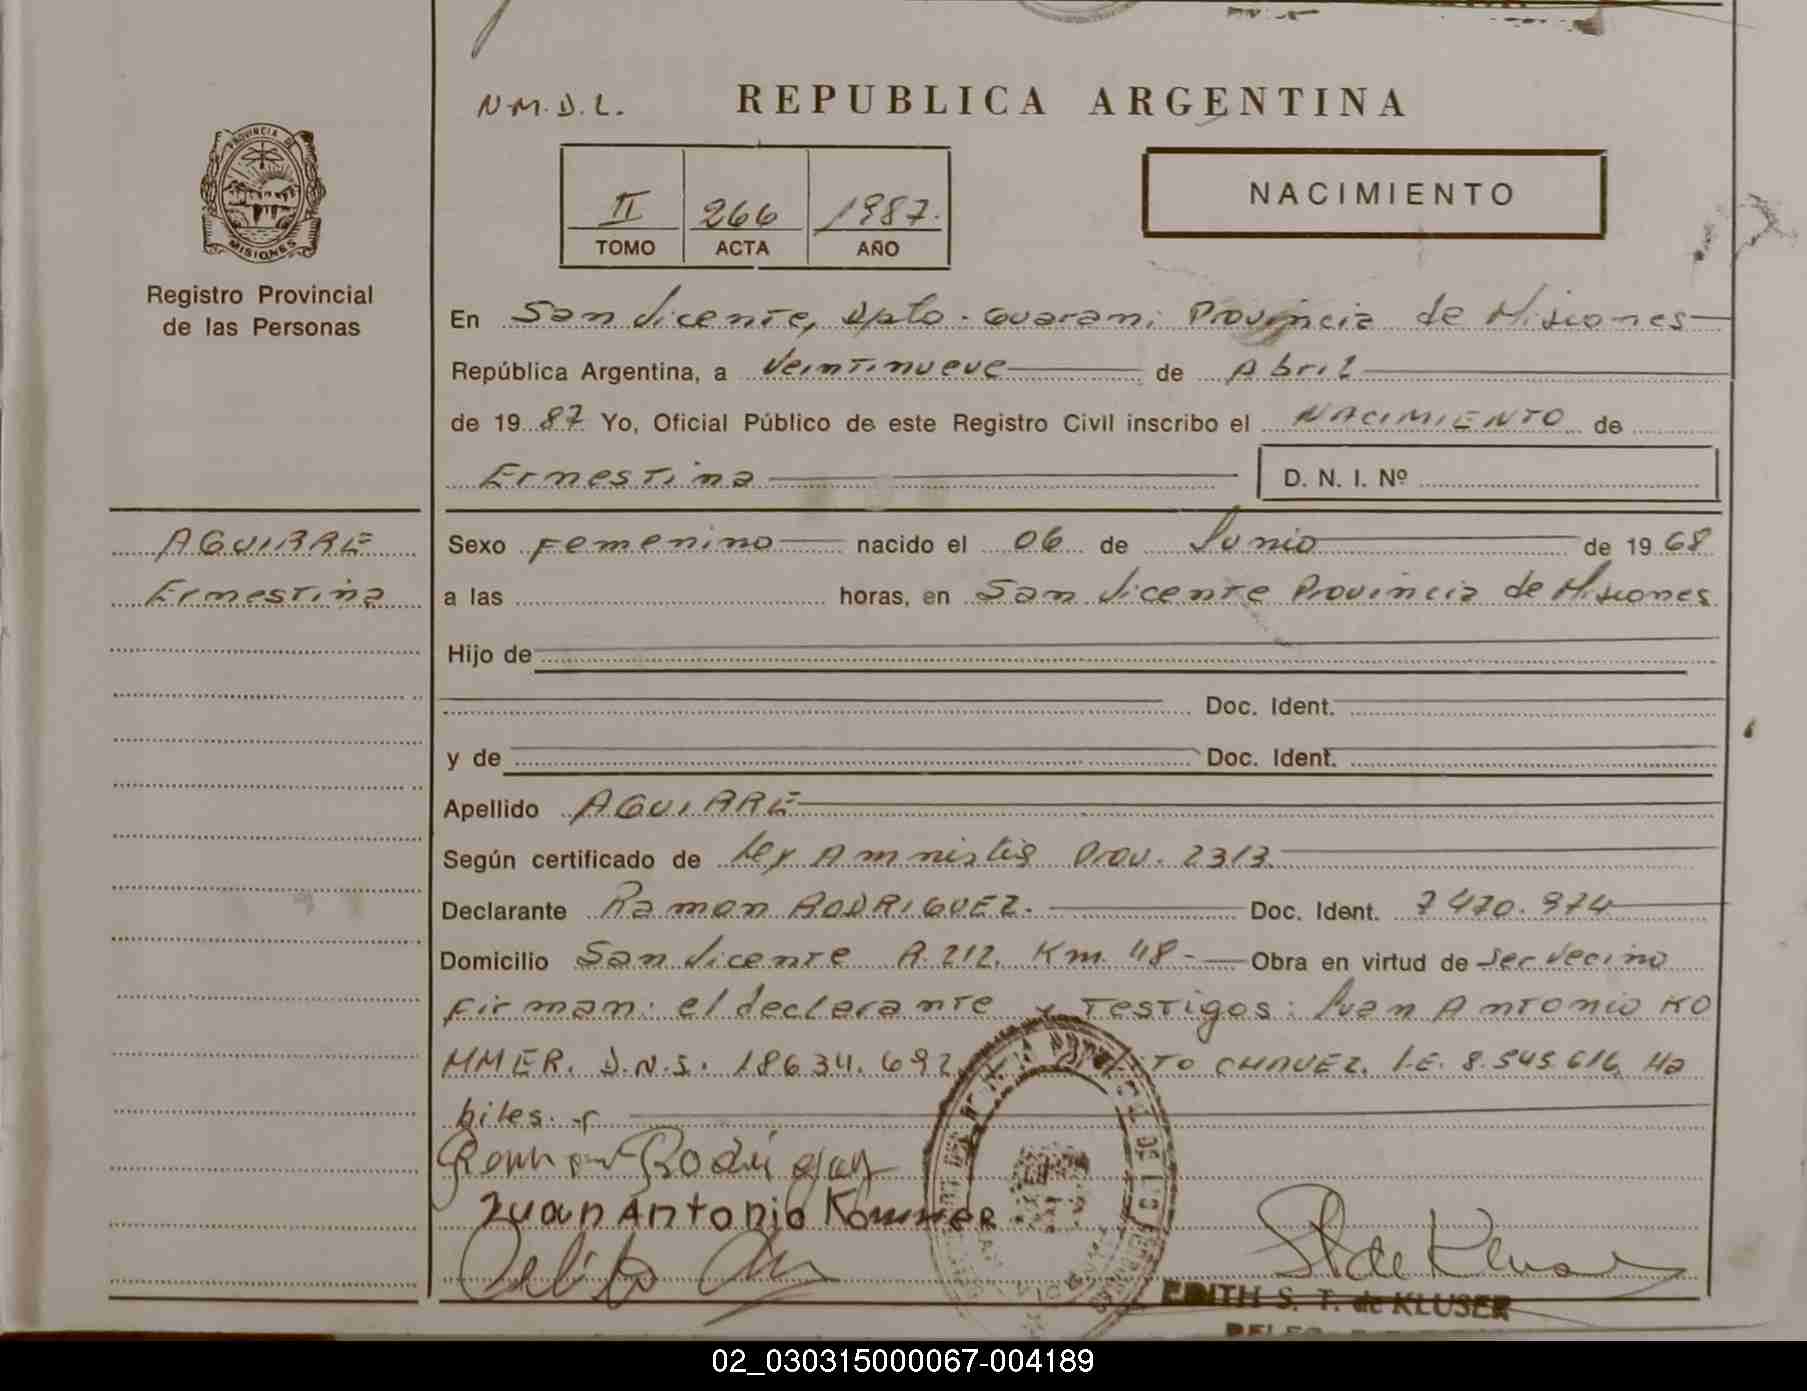 N.M.D.L.
REPUBLICA ARGENTINA
PROVINCIA DE
MISIONES
Registro Provincial
de las Personas
II 266 1987.
TOMO ACTA AÑO
NACIMIENTO
En San Vicente, Dpto. Guarani Provincia de Misiones
República Argentina, a Veintinueve de Abril
de 19 87 Yo, Oficial Público de este Registro Civil inscribo el NACIMIENTO de
Ernestina D. N. I. Nº
AGUIRRE
Ernestina
Sexo femenino nacido el 06 de Junio de 19 68
a las horas, en San Vicente Provincia de Misiones
Hijo de
Doc. Ident.
y de Doc. Ident.
Apellido AGUIRRE
Según certificado de Ley Amnistia Prov. 2313
Declarante Ramon RODRIGUEZ. Doc. Ident. 7470.974
Domicilio San Vicente R. 212. Km. 48 - Obra en virtud de ser vecino
firman: el declarante y Testigos: Juan Antonio KO
MMER. D.N.I. 18634.692 TO CHAVEZ. L.E. 8.545.616 Ha
biles.
Ramon Rodriguez
Juan Antonio Kommer
EDITH S. T. de KLUSER
02_030315000067-004189